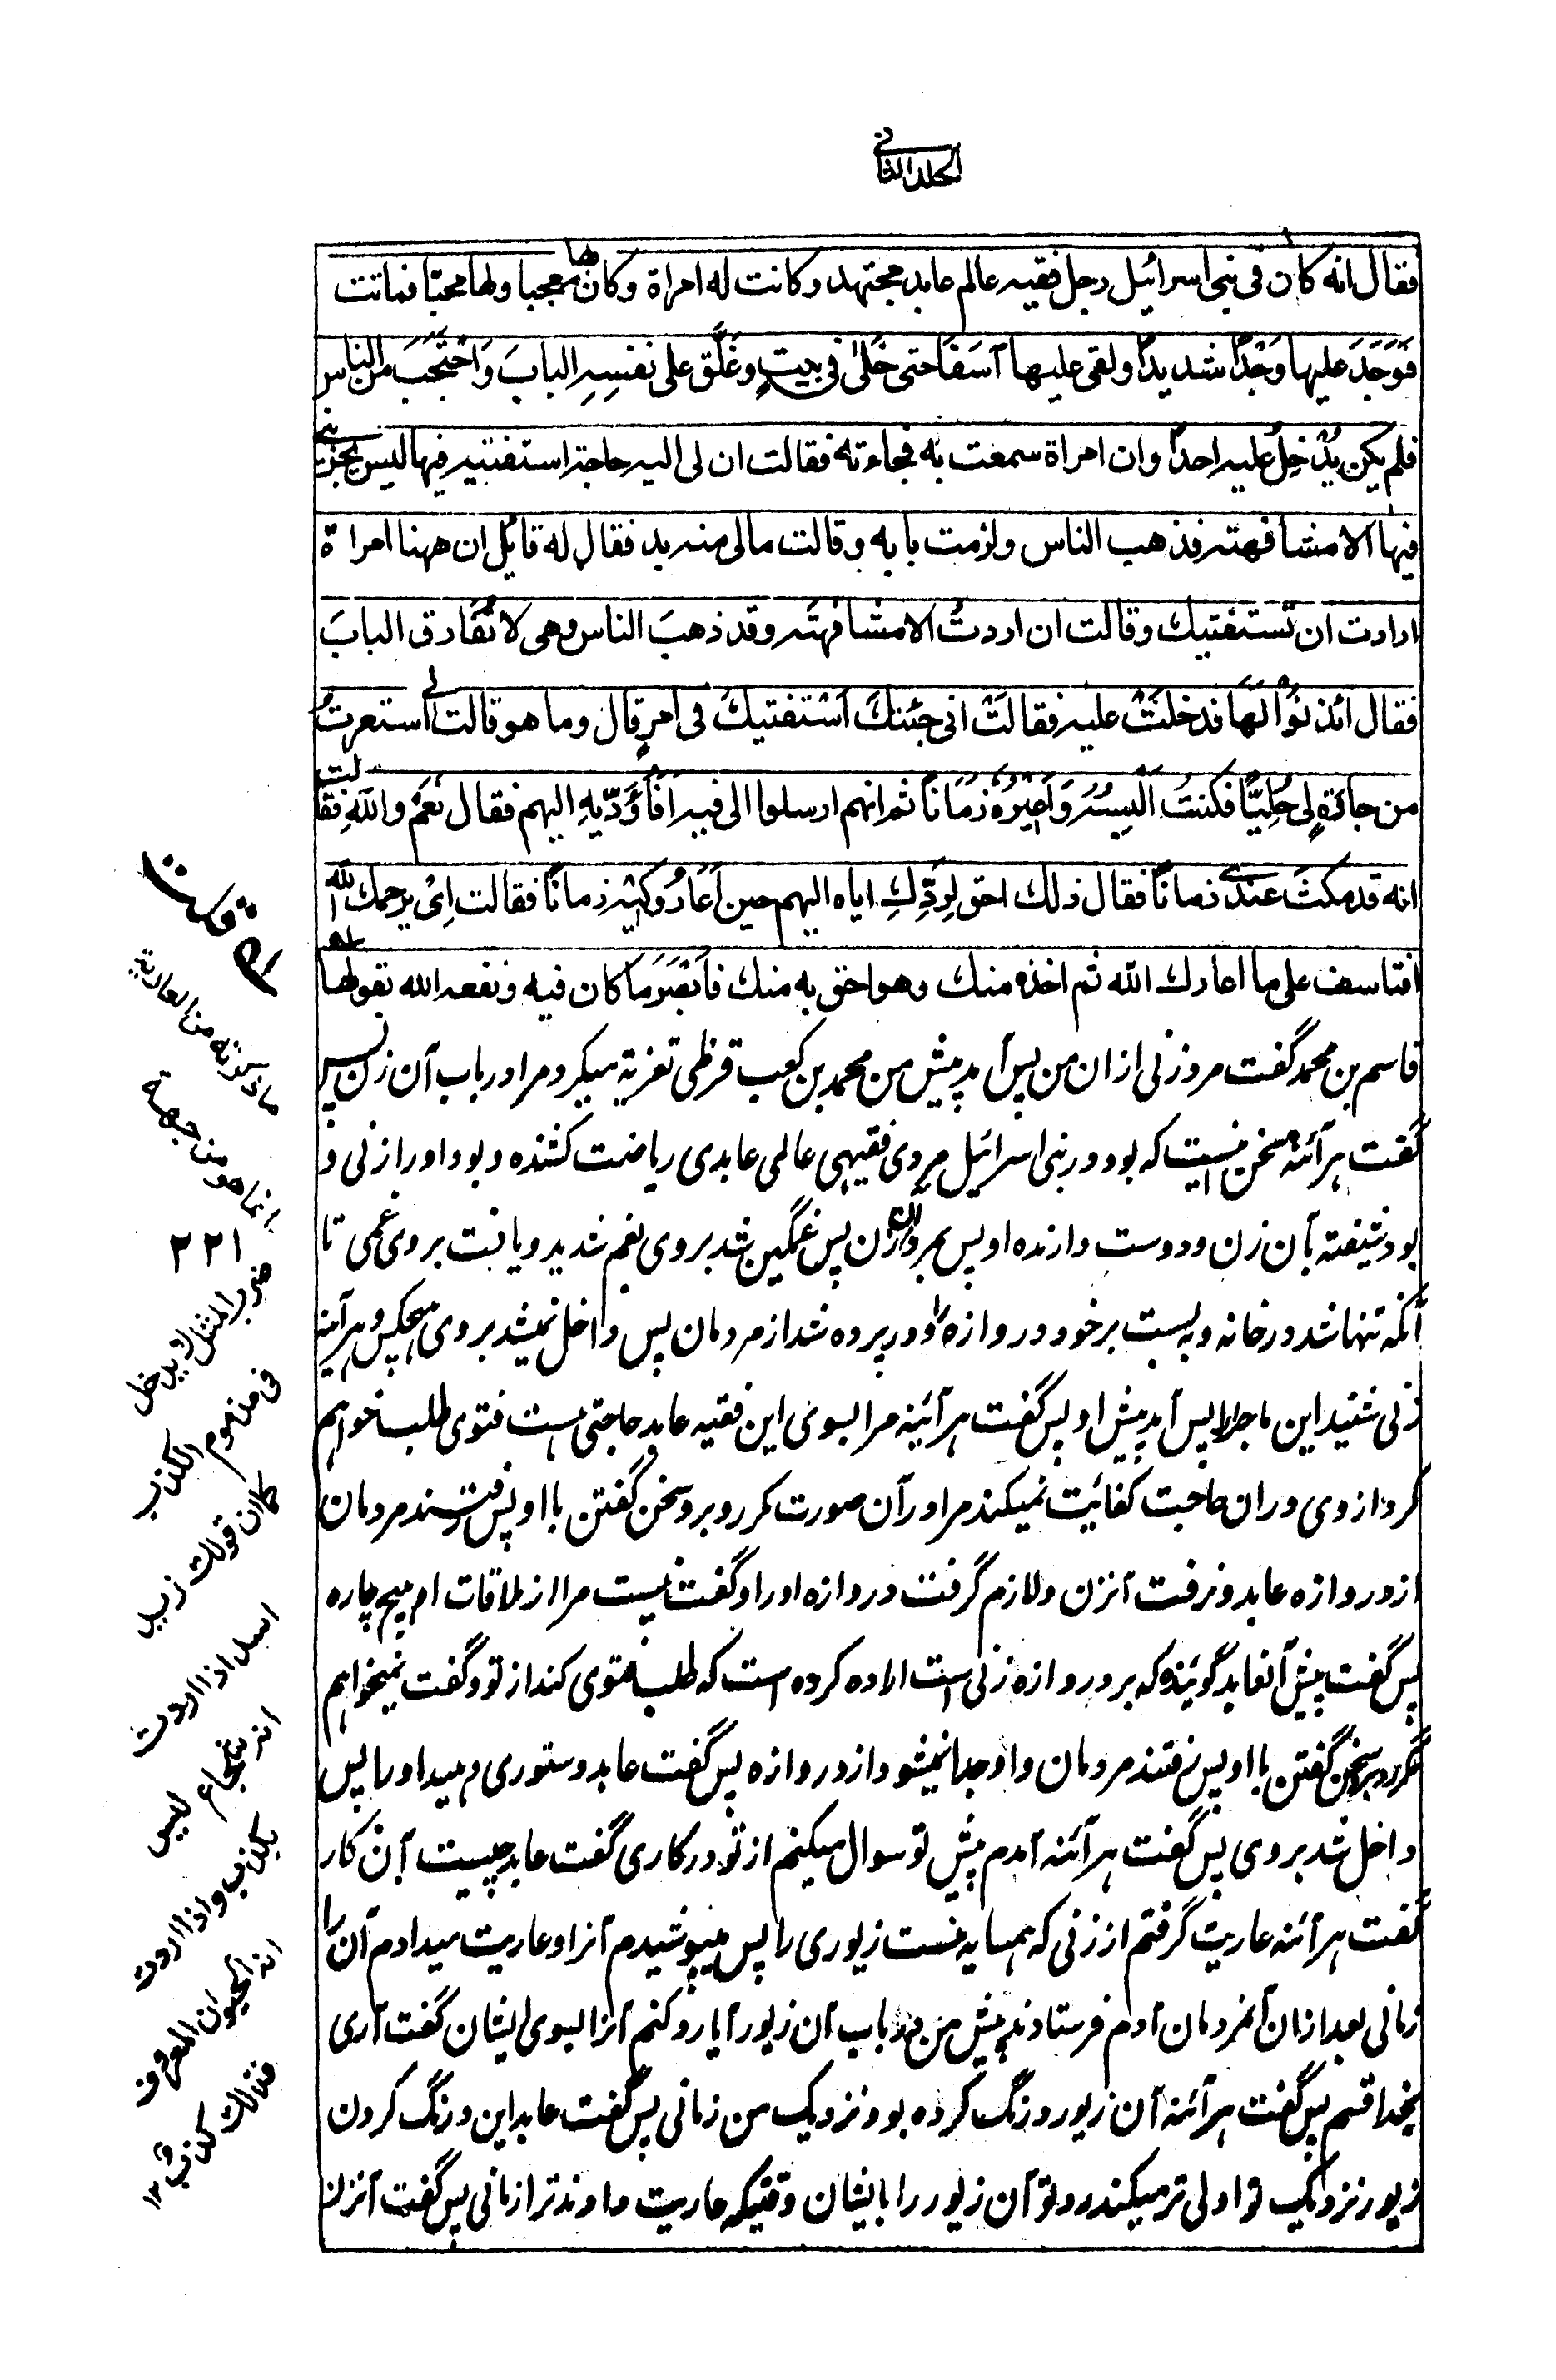 الجلد الثانی
فقال انه كان فى بنى اسرائيل رجل فقيه عالم عابد مجتهد وكانت له امراة وكان بها معجبا ولها محبّا فماتت
فَوَجَدَ عليها وَجْدًا شديدًا ولقى عليها آسَفًا حتى خَلىٰ فى بيتٍ وغَلَّق على نفسِهِ البابَ وَاحْتَجَبَ من الناس
فلم يكن يدْخلُ عليه احدًا وان امراة سمعت به فجاءته فقالت ان لى اليه حاجة استفتيه فيها ليس يجزينى
فيها الا مشافهته فذهب الناس ولزمت بابه وقالت مالى منه بد فقال له قائل ان ههنا امراة
ارادت ان تستفتيك وقالت ان اردتُ الا مشافهتَه وقد ذهبَ الناس وهى لا تُفَارق البابَ
فقال ائذنوا لَهَا فدخلَتْ عليه فقالَتْ انى جئتكَ اَسْتفتيكَ فى امرٍ قال وما هو قالت انى استعرتُ
من جارَةٍ لى حُلِيًّا فكنتُ اَلْبِسُهُ وَاُعِيْرُهُ زَمَانًا ثم انهم ارسلوا الى فيه اَفَاُؤَدِّيهِ اليهم فقال نَعَمْ واللهِ فقالت
انه قد مكثَ عندى زمانًا فقال ذلك احق لِردِّكِ اياه اليهم حين اَعَارُوكيْه زمانًا فقالت اىْ يرحمك الله
افتاسف على ما اعارك الله ثم اخذه منك وهو احق به منك فاَبْصَرَ مَا كان فيه ونفعه الله بقولها
قاسم بن محمد گفت مرد زنی از ان من پس آمد پیش من محمد بن کعب قرظی تعزیة میکرد مرا در باب آن زن پس
گفت هر آئنه سخن اینست که بود در بنی اسرائیل مردی فقیهی عالمی عابدی ریاضت کشنده و بود او را زنی و
بود شیفته بآن زن و دوست دارنده او پس بمرد آن زن پس غمگین شد بر وی بغم شدید و یافت بر وی غمی تا
آنکه تنها شد در خانه و به بست بر خود دروازه را و در پرده شد از مردمان پس داخل نمیشد بر وی هیچکس و هر آئینه
زنی شنید این ماجرا پس آمد پیش او پس گفت هر آئینه مرا بسوی این فقیه عابد حاجتی هست فتوی طلب خواهم
کرد از وی در ان حاجت کفائیت نمیکند مرا در آن صورت مگر روبرو سخن گفتن با او پس رفتند مردمان
از دروازه عابد و نرفت آنزن و لازم گرفت دروازه او را و گفت نیست مرا از ملاقات ام هیچ چاره
پس گفت پیش آنعابد گوینده که بر دروازه زنی است اراده کرده است که طلب فتوی کند از تو و گفت نمیخواهم
مگر روبرو سخن گفتن با او پس رفتند مردمان و او جدا نمیشود از دروازه پس گفت عابد دستوری دهید او را پس
داخل شد بر وی پس گفت هر آئنه آمدم پیش تو سوال میکنم از تو در کاری گفت عابد چیست آن کار
گفت هر آئنه عاریت گرفتم از زنی که همسایه منست زیوری را پس میپوشیدم آنرا و عاریت میدادم آن را
زمانی بعد ازان آنمردمان آدم فرستادند پیش من در باب آن زیور آیا رد کنم آنرا بسوی ایشان گفت آری
بخدا قسم پس گفت هر آئنه آن زیور درنگ کرده بود نزدیک من زمانی پس گفت عابد این درنگ کردن
زیور نزدیک تو اولی تر میکند رد تو آن زیور را بایشان وقتیکه عاریت دادند ترا زمانی پس گفت آنزن
ما تنه من العارية
انما هو من جهة
٢٢١
ضرب المثل لا يدخل
فى مذموم الكذب
كان قولك زيد
اسد اذا اردت
انه شجاع ليس
بكذب واذا اردت
انه الحيوان المعروف
فذلك كذب ١٢